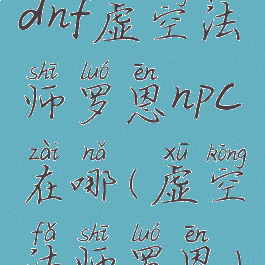 dnf虚空法
shī luó ēn
师罗恩npc
zài nǎ xū kōng
在哪(虚空
fǎ shī luó ēn
法师罗恩)